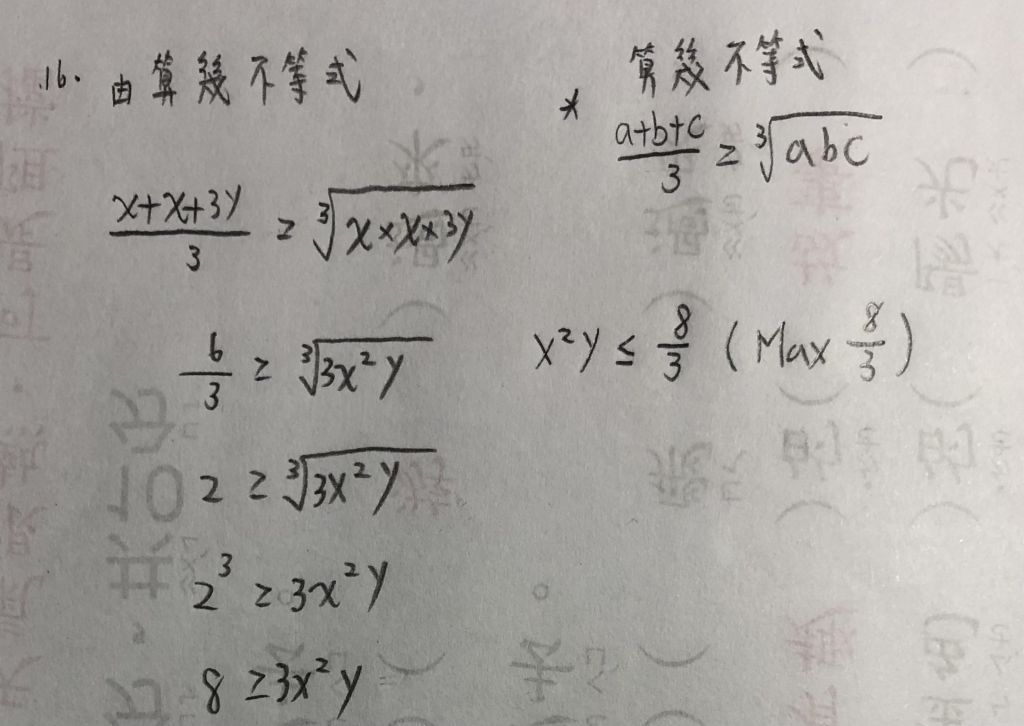 16. 由算幾不等式
x+x+3y/3 ≥ ∛(x×x×3y)
6/3 ≥ ∛(3x²y)
2 ≥ ∛(3x²y)
2³ ≥ 3x²y
8 ≥ 3x²y
* 算幾不等式
a+b+c/3 ≥ ∛(abc)
x²y ≤ 8/3 (Max 8/3)